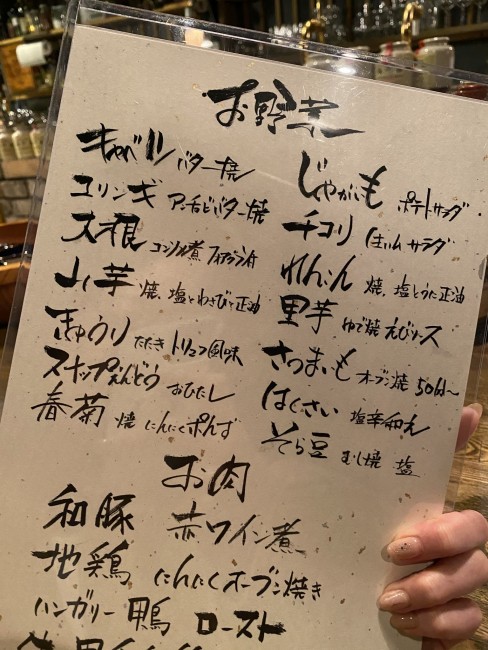 お野菜
キャベツ バター焼
エリンギ アンチョビバター焼
大根 コンソメ煮 フォアグラ付
山芋 焼、塩とわさびと正油
きゅうり たたき トリュフ風味
スナップえんどう おひたし
春菊 焼 にんにくポンず
じゃがいも ポテトサラダ
チコリ 生ハムサラダ
れんこん 焼、塩とうに正油
里芋 ゆで焼 えびソース
さつまいも オーブン焼 50分〜
はくさい 塩辛和え
そら豆 むし焼 塩
お肉
和豚 赤ワイン煮
地鶏 にんにくオーブン焼き
ハンガリー鴨 ロースト